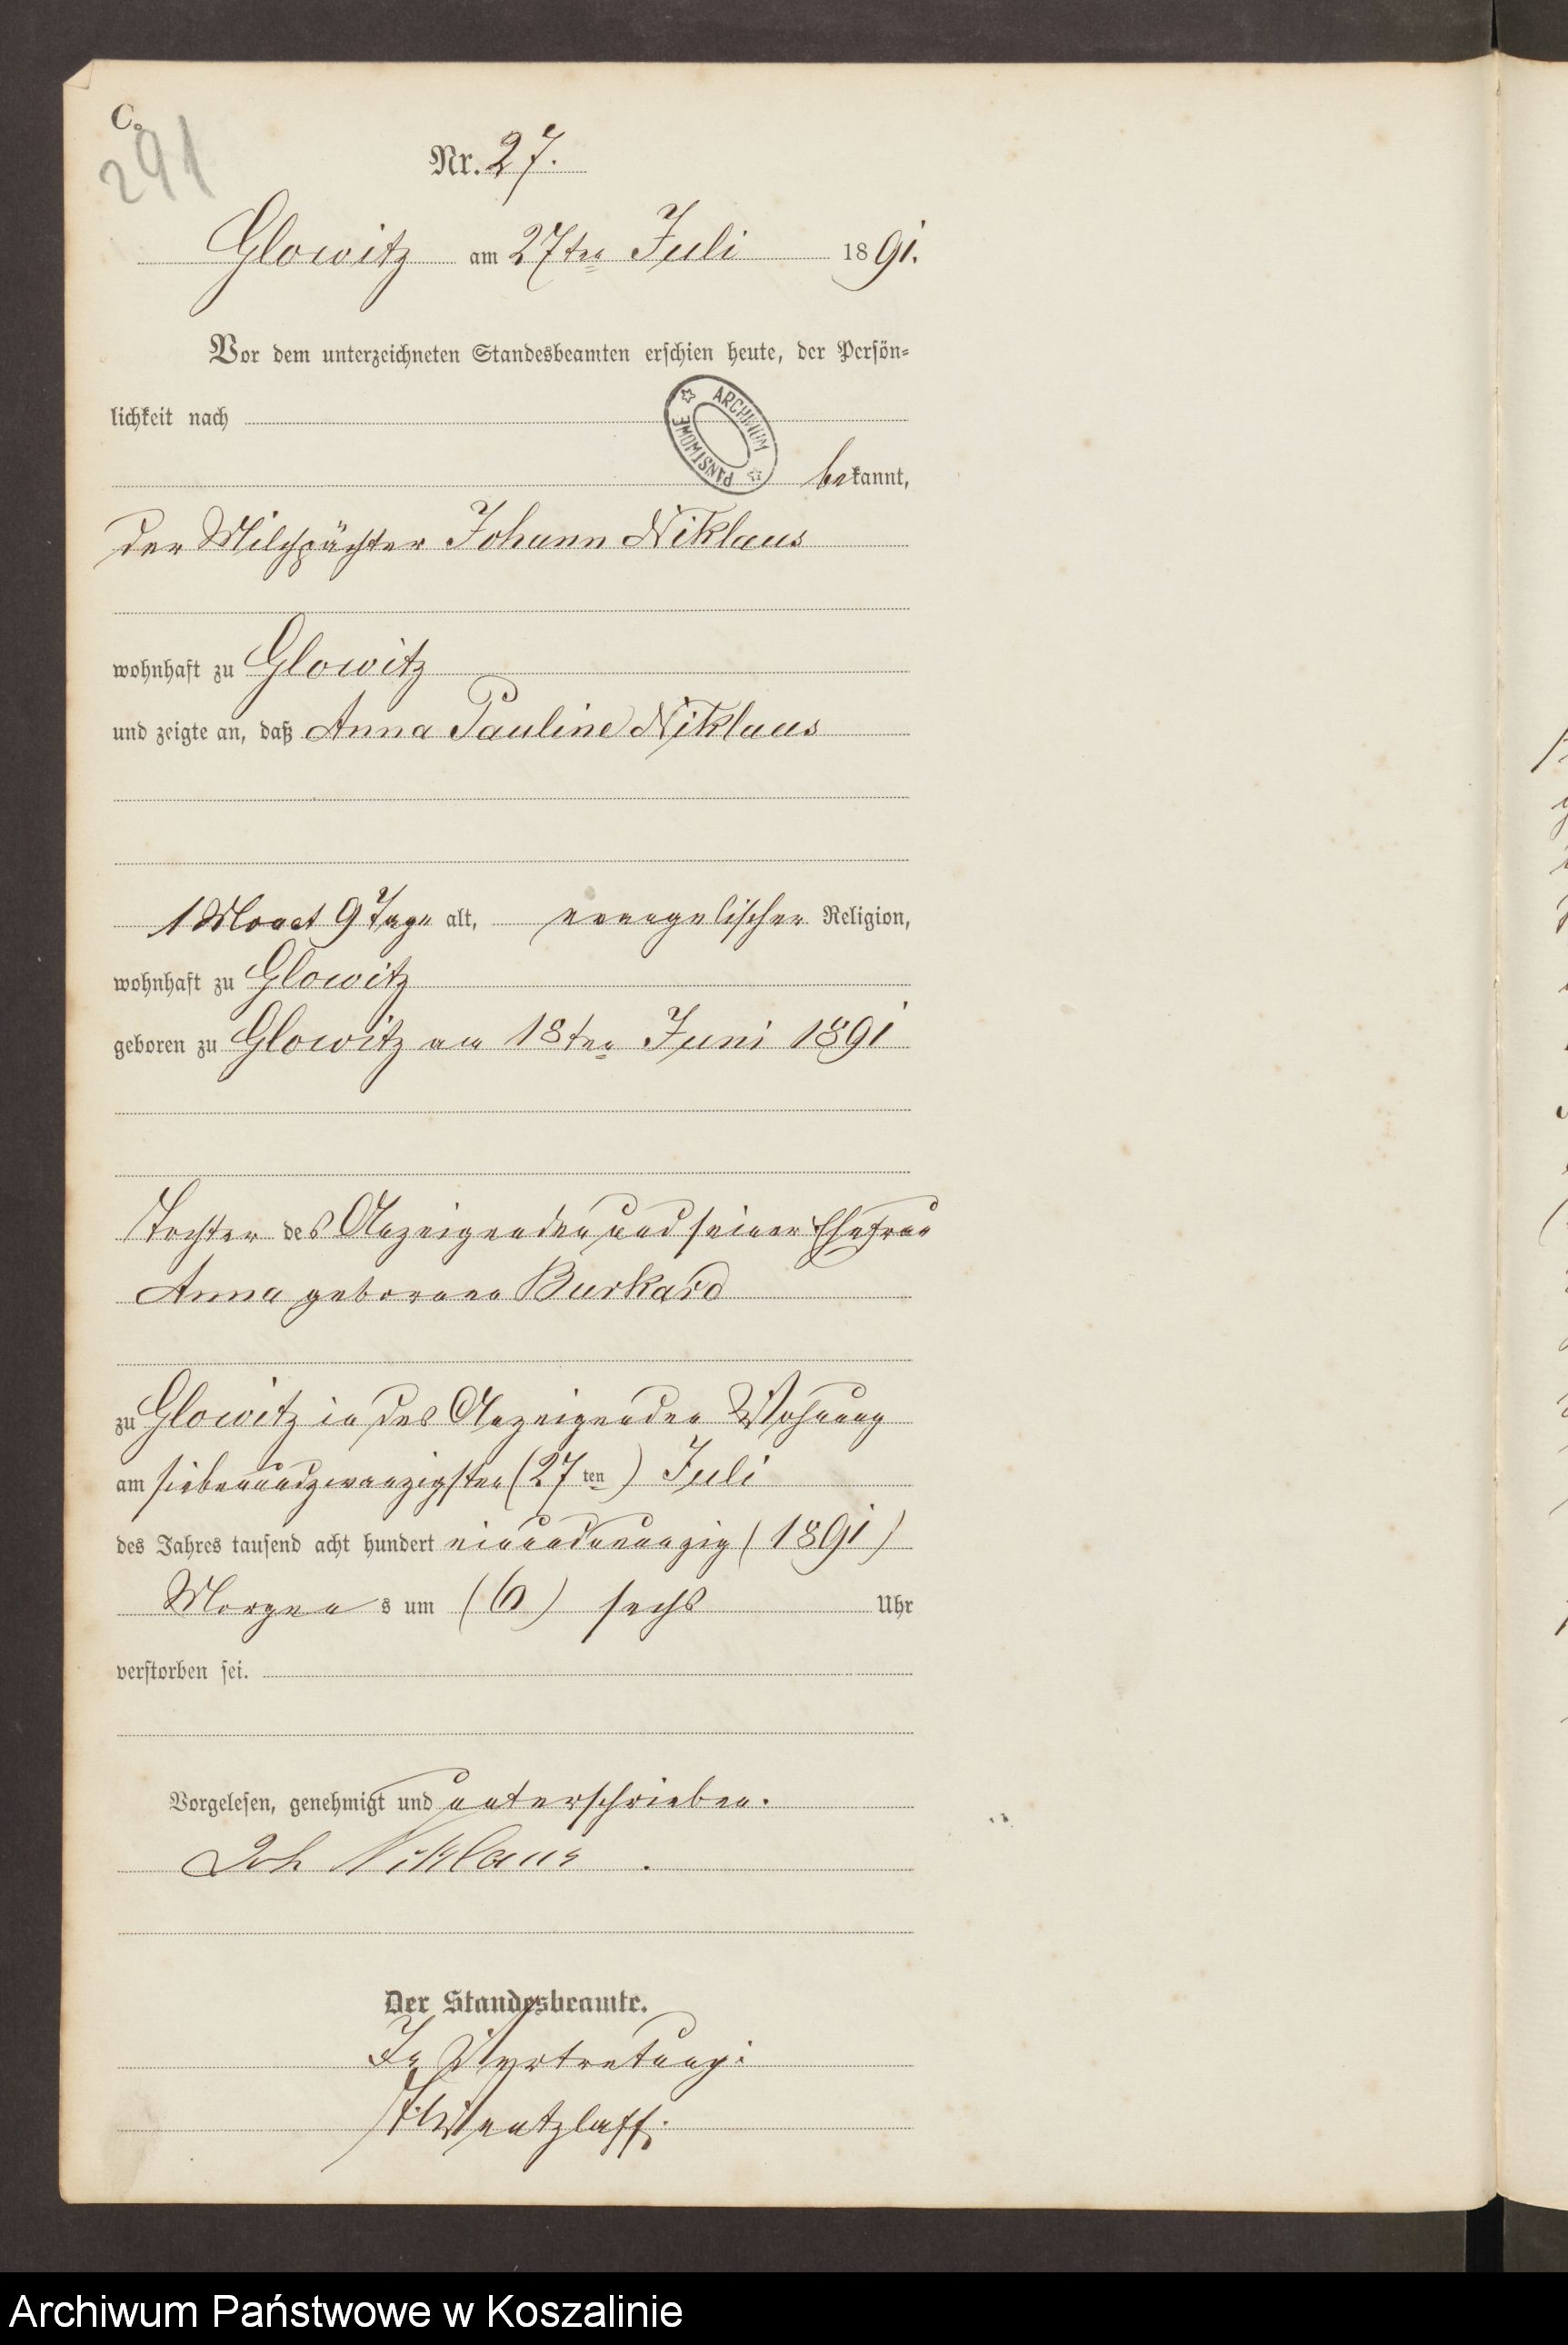 C.
291
Nr. 27.
Glowitz am 27ten Juli 1891.
Vor dem unterzeichneten Standesbeamten erschien heute, der Persön-
lichkeit nach
ARCHIWUM PAŃSTWOWE
bekannt,
der Milchpächter Johann Niklaus
wohnhaft zu Glowitz
und zeigte an, daß Anna Pauline Niklaus
1 Monat 9 Tage alt, evangelischer Religion,
wohnhaft zu Glowitz
geboren zu Glowitz am 18ten Juni 1891
Tochter des Anzeigenden und seiner Ehefrau
Anna geborene Burkard
zu Glowitz in des Anzeigenden Wohnung
am siebenundzwanzigsten (27ten) Juli
des Jahres tausend acht hundert einundneunzig (1891)
Morgens um (6) sechs Uhr
verstorben sei.
Vorgelesen, genehmigt und unterschrieben.
Joh Niklaus.
Der Standesbeamte.
In Vertretung:
Wentzlaff.
Archiwum Państwowe w Koszalinie